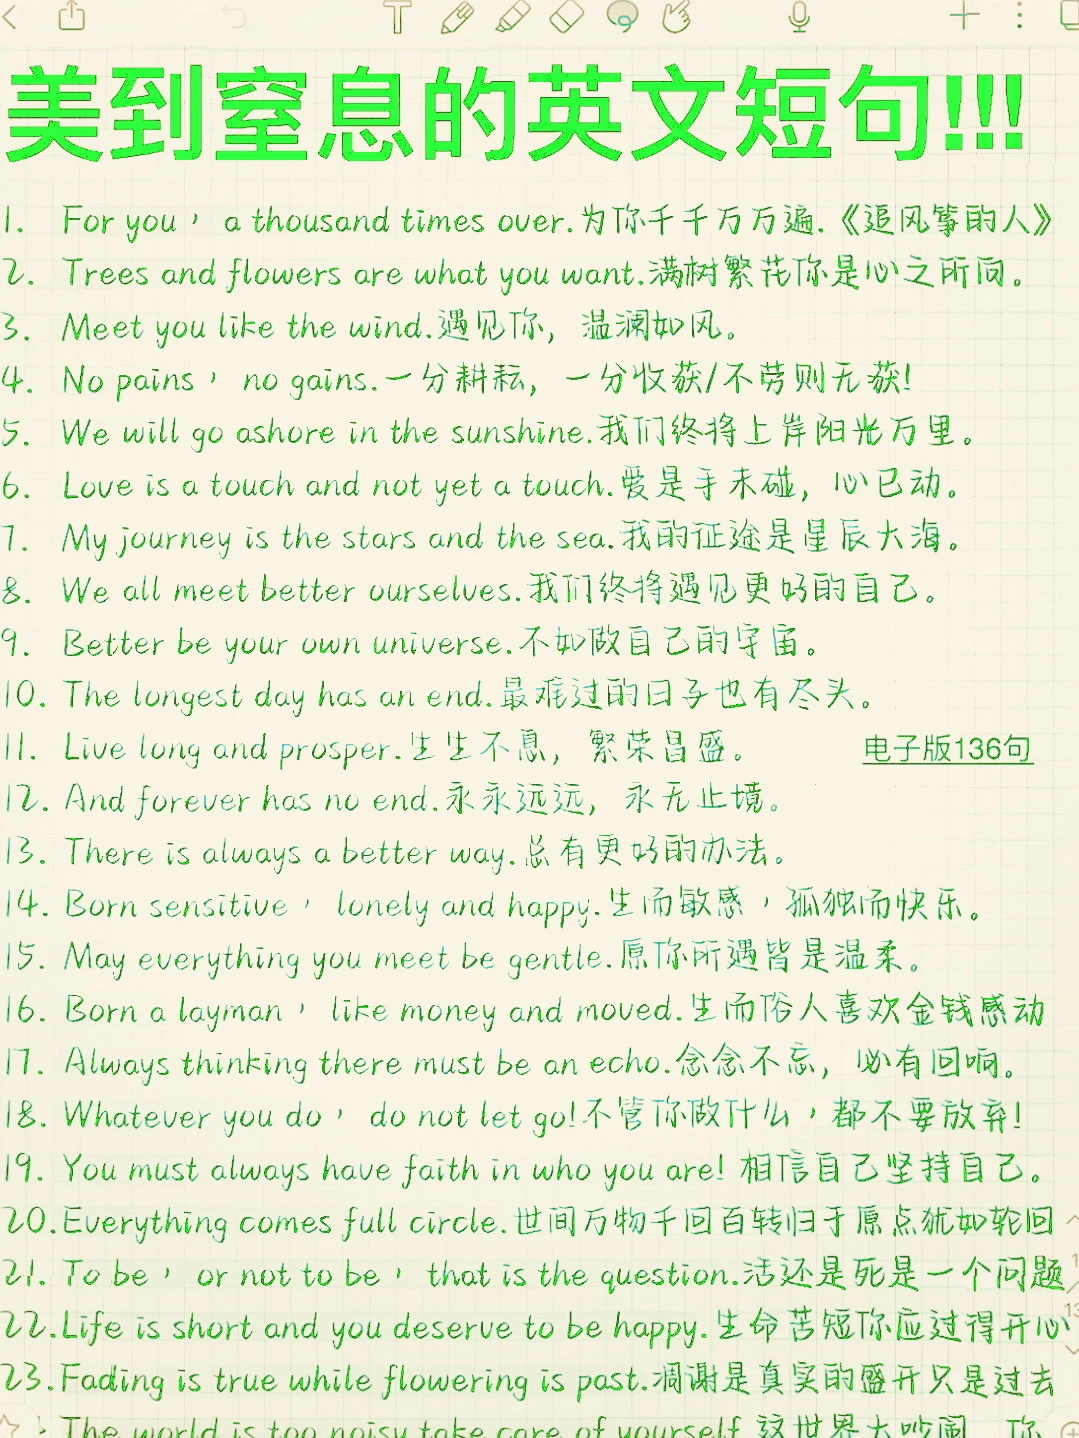 美到窒息的英文短句!!!
1. For you， a thousand times over.为你千千万万遍.《追风筝的人》
2. Trees and flowers are what you want.满树繁花你是心之所向。
3. Meet you like the wind.遇见你，温澜如风。
4. No pains， no gains.一分耕耘，一分收获/不劳则无获!
5. We will go ashore in the sunshine.我们终将上岸阳光万里。
6. Love is a touch and not yet a touch.爱是手未碰，心已动。
7. My journey is the stars and the sea.我的征途是星辰大海。
8. We all meet better ourselves.我们终将遇见更好的自己。
9. Better be your own universe.不如做自己的宇宙。
10. The longest day has an end.最难过的日子也有尽头。
11. Live long and prosper.生生不息，繁荣昌盛。
电子版136句
12. And forever has no end.永永远远，永无止境。
13. There is always a better way.总有更好的办法。
14. Born sensitive， lonely and happy.生而敏感，孤独而快乐。
15. May everything you meet be gentle.愿你所遇皆是温柔。
16. Born a layman， like money and moved.生而俗人喜欢金钱感动
17. Always thinking there must be an echo.念念不忘，必有回响。
18. Whatever you do， do not let go!不管你做什么，都不要放弃!
19. You must always have faith in who you are! 相信自己坚持自己。
20.Everything comes full circle.世间万物千回百转归于原点犹如轮回
21. To be， or not to be， that is the question.活还是死是一个问题
22.Life is short and you deserve to be happy.生命苦短你应过得开心
23.Fading is true while flowering is past.凋谢是真实的盛开只是过去
The world is too noisy take care of yourself 这世界太吵闹 你